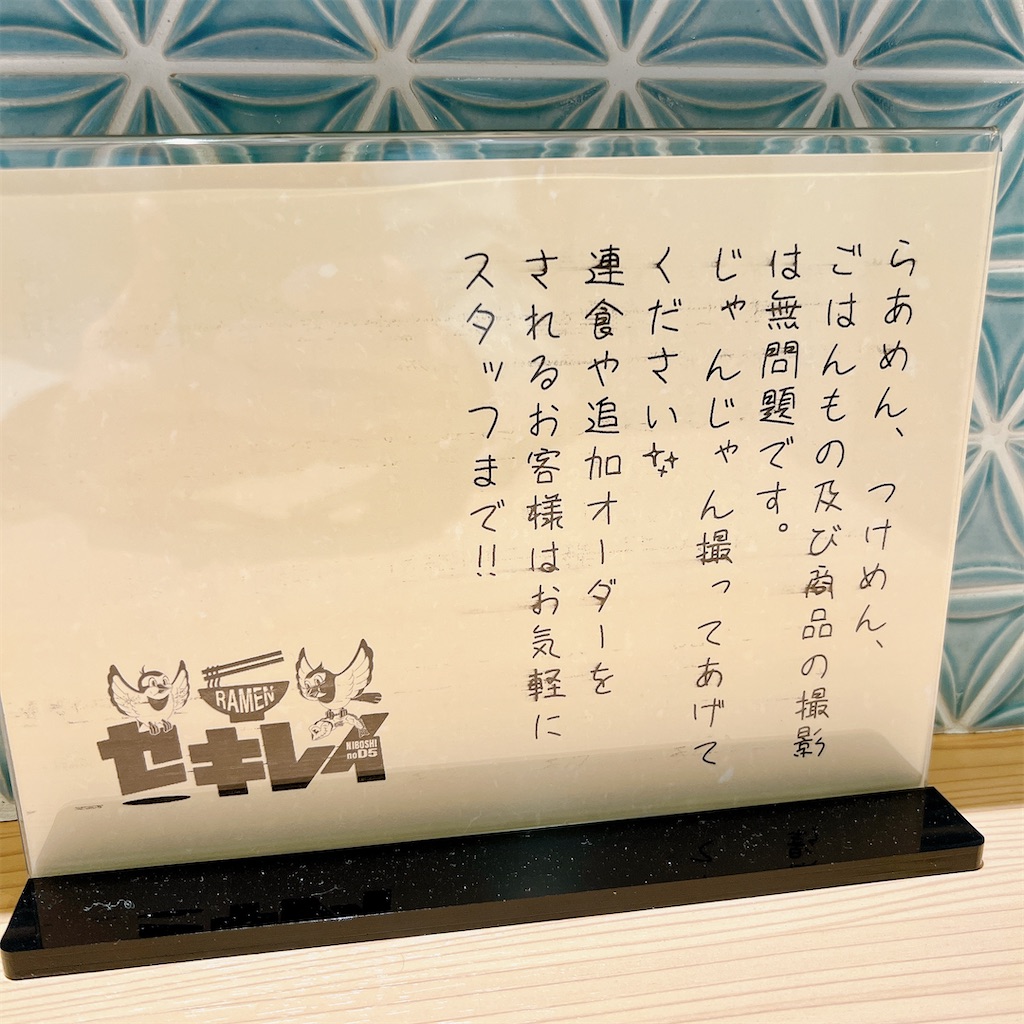 らあめん、つけめん、
ごはんもの及び商品の撮影
は無問題です。
じゃんじゃん撮ってあげて
ください✨
連食や追加オーダーを
されるお客様はお気軽に
スタッフまで!!
RAMEN
セキレイ
NIBOSHI
noD5